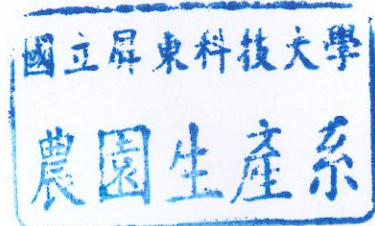 國立屏東科技大學
農園生產系